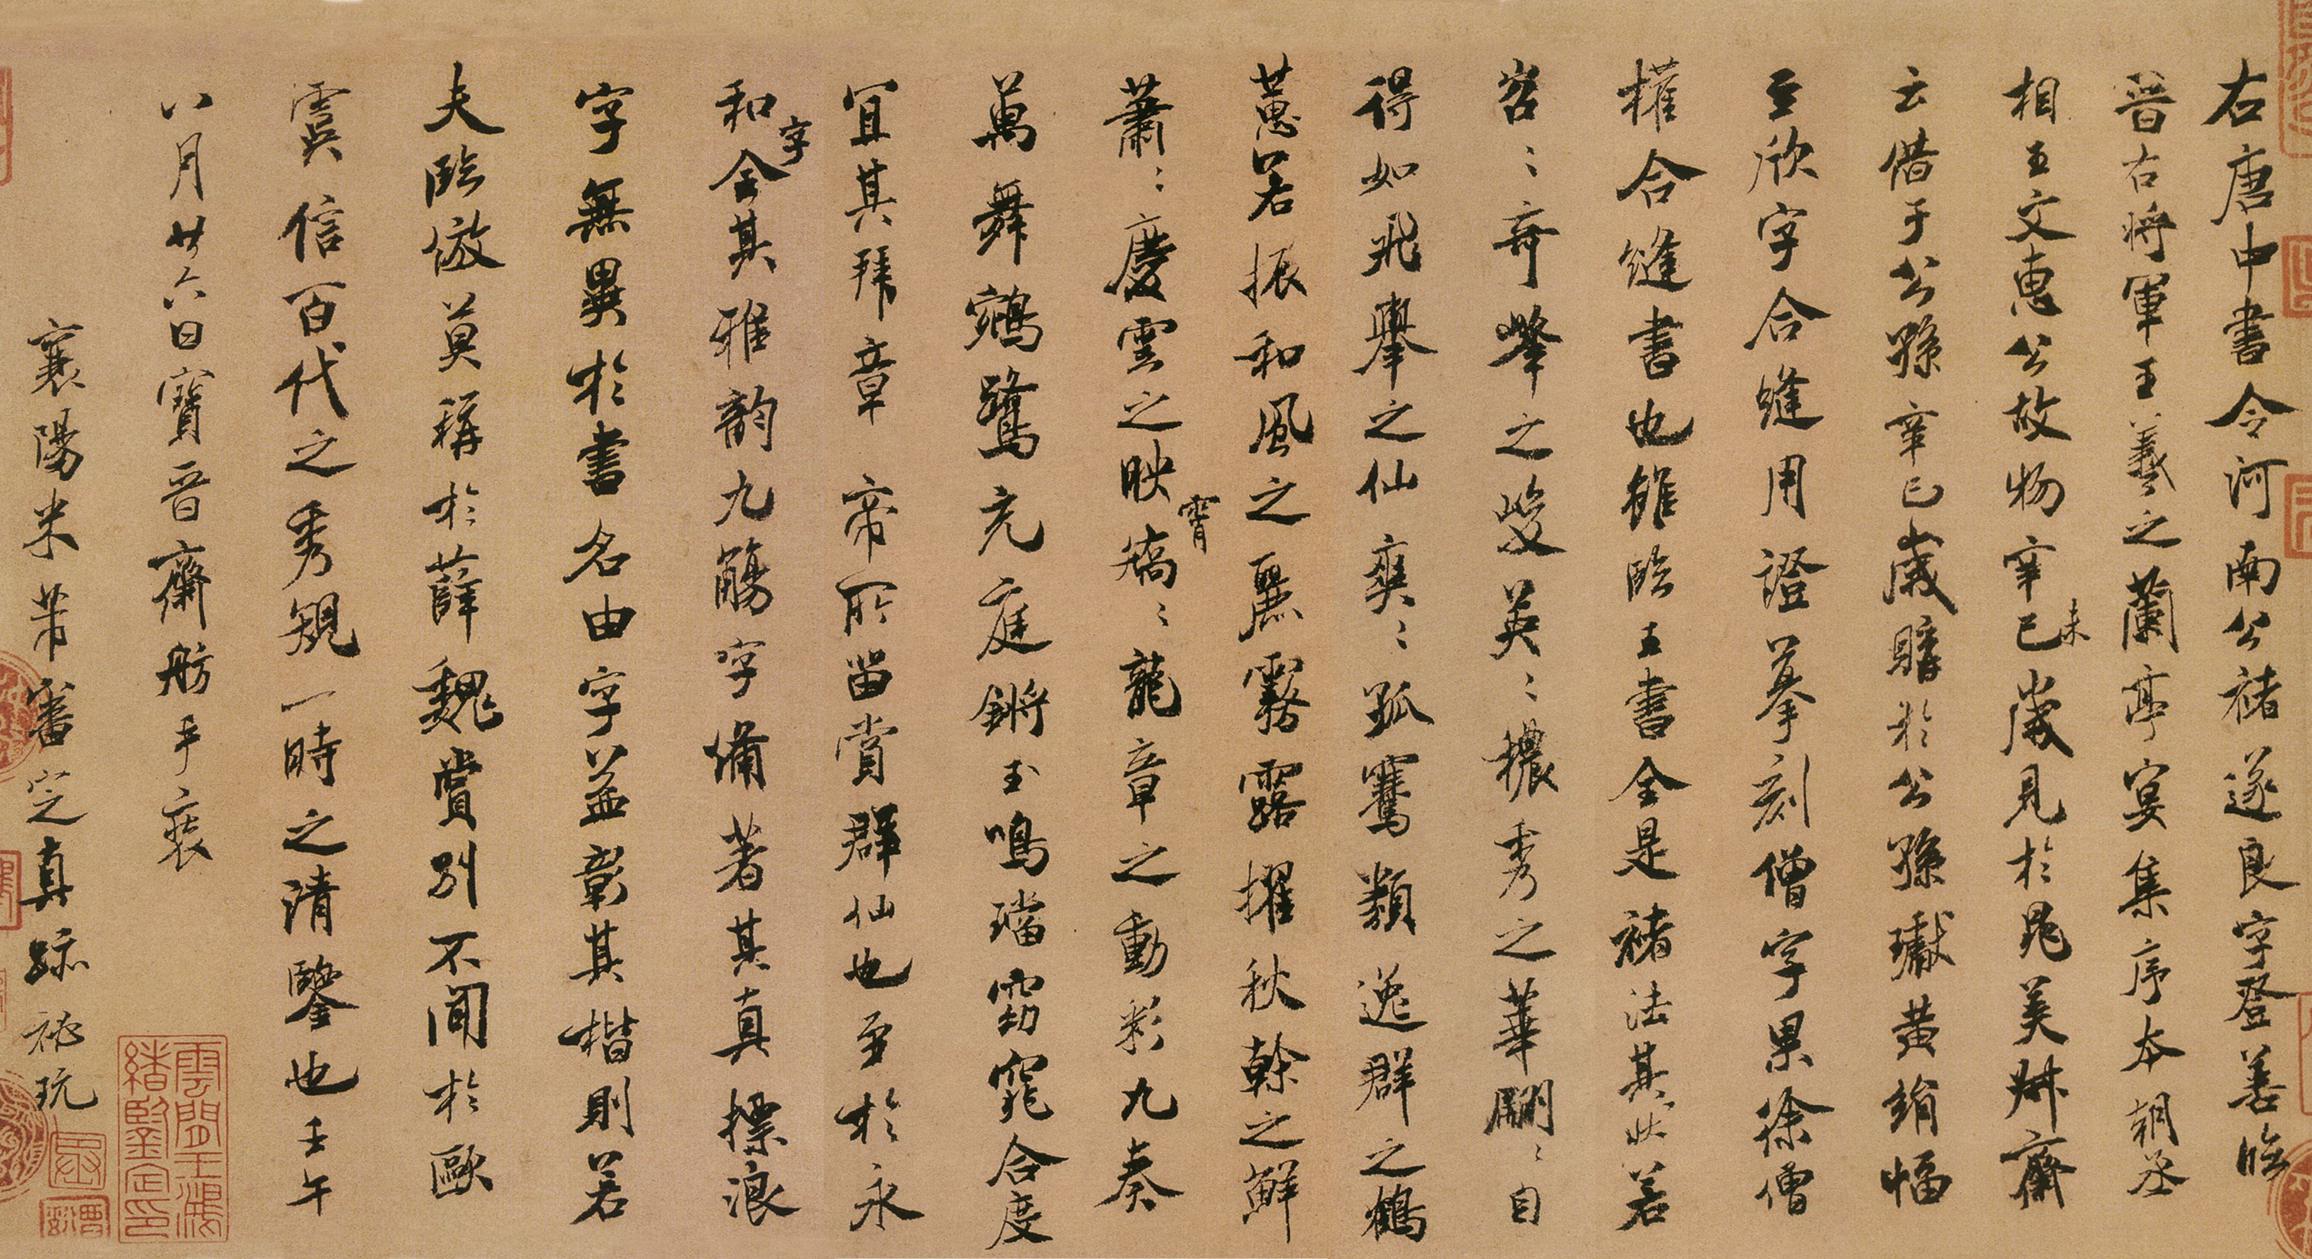 右唐中書令河南公褚遂良字登善臨
晉右將軍王羲之蘭亭宴集序本朝丞
相王文惠公故物辛巳未歲見於晁美叔齋
云借于公孫辛巳歲購於公孫瓛黃絹幅
至欣字合縫用證摹刻僧字果徐僧
權合縫書也雖臨王書全是褚法其狀若
岩〻奇峯之峻英〻穠秀之華翩〻自
得如飛舉之仙爽〻孤騫類逸群之鶴
蕙若振和風之麗霧露擢秋幹之鮮
蕭〻慶雲之映霄矯〻龍章之動彩九奏
萬舞鵷鷺充庭鏘玉鳴璫窈窕合度
宜其拜章帝所留賞群仙也至於永
和字全其雅韵九觴字備著其真標浪
字無異於書名由字益彰其楷則若
夫臨倣莫稱於薛魏賞別不聞於歐
虞信百代之秀規一時之清鑒也壬午
八月廿六日寶晉齋舫手裝
襄陽米芾審定真跡秘玩